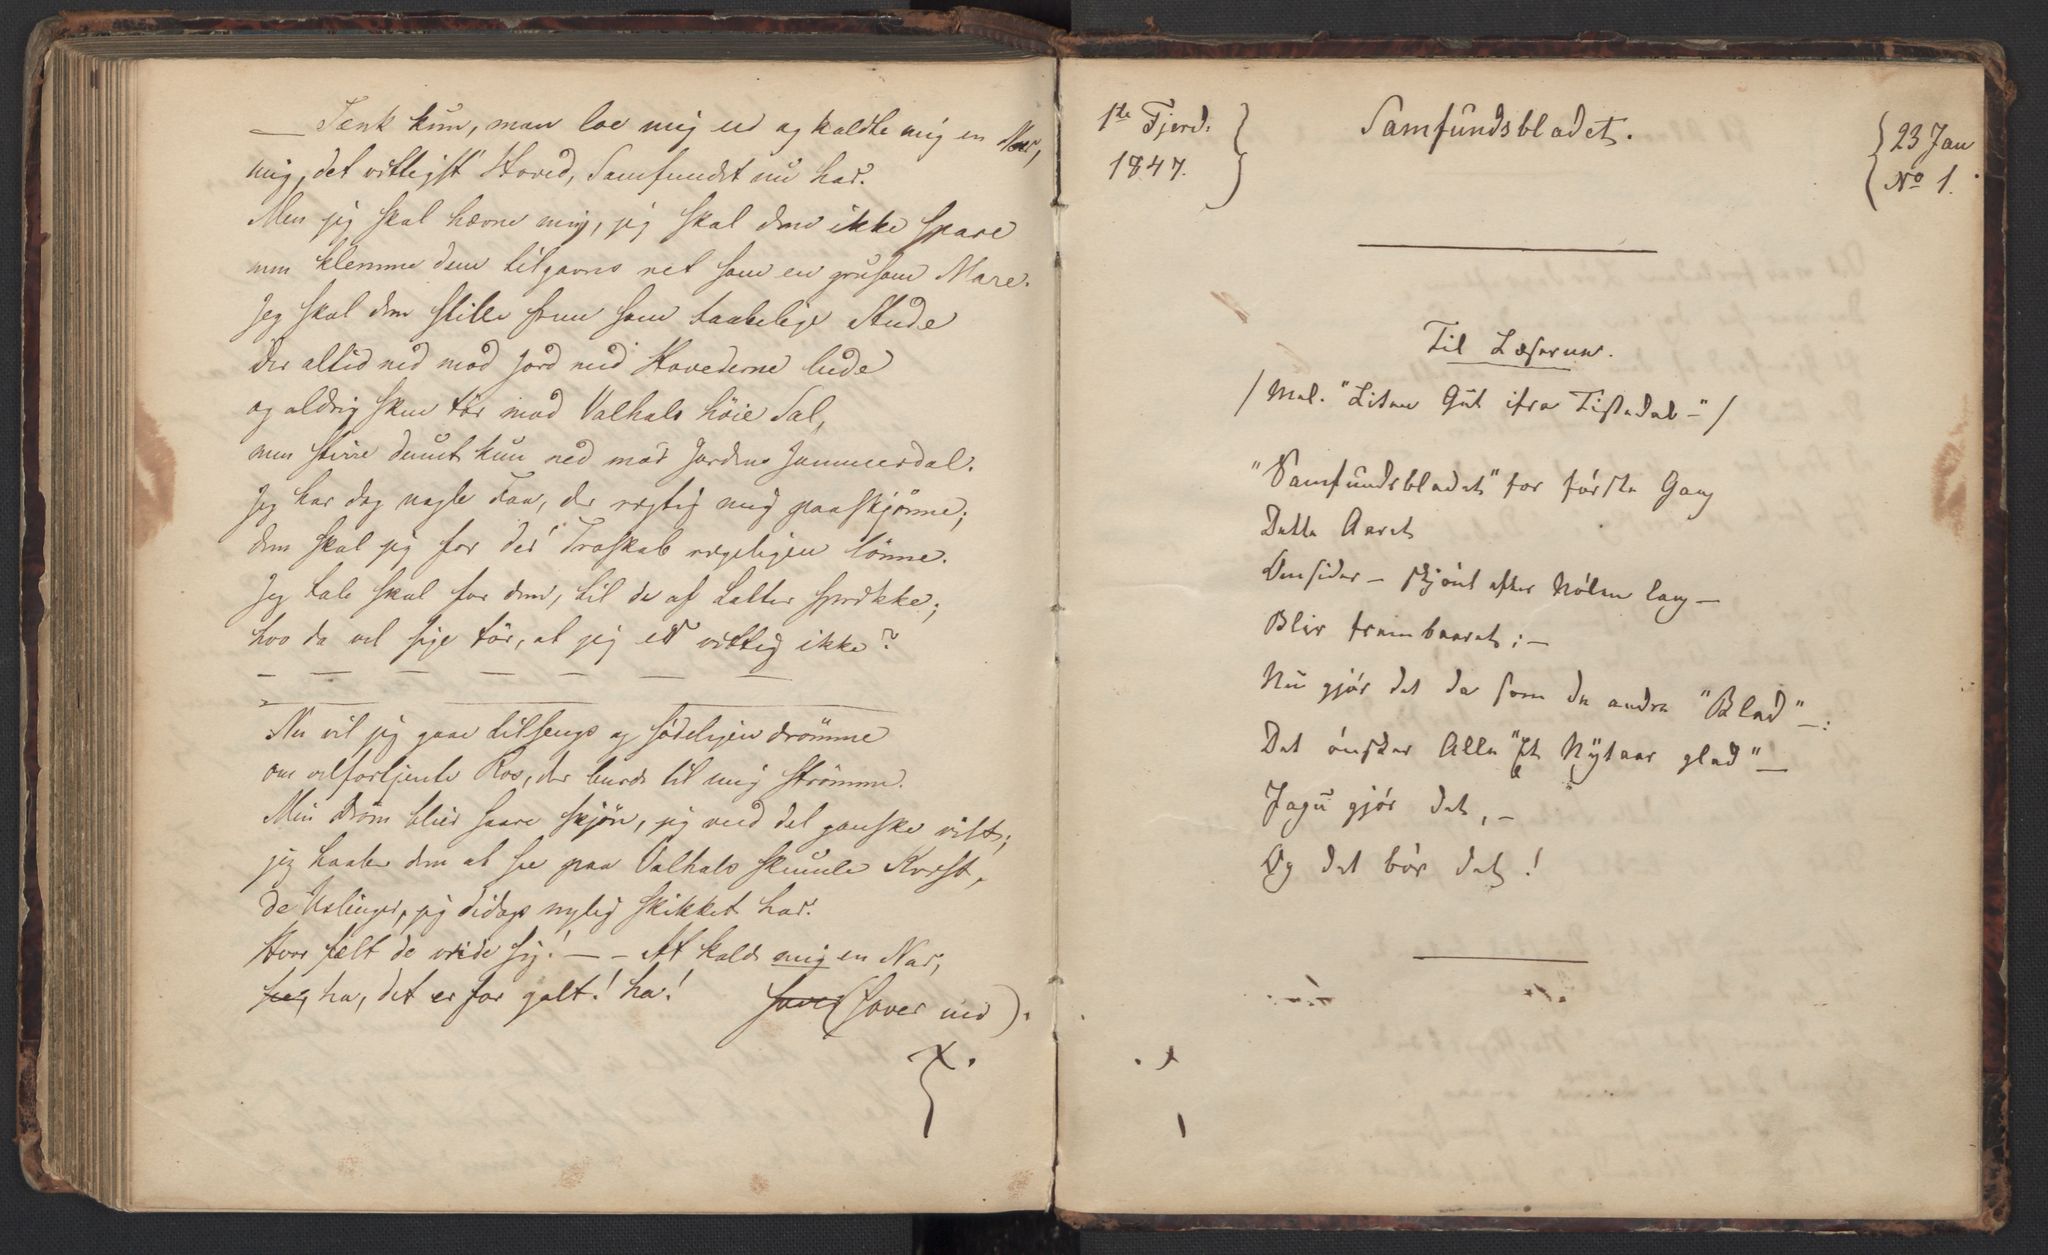 — Tænk kun, man loe mig ud og kaldte mig en Nar,
mig, det vittigst' Hoved, Samfundet nu har.
Men jeg skal hævne mig, jeg skal dem ikke spare
men klemme dem tilgavns ret som en grusom Mare.
Jeg skal dem stille frem som taabelige Stude
der altid ned mod Jord med Hovederne lude
og aldrig skue tör mod Valhals höie Sal,
men stirre dumt kun ned mod Jordens Jammerdal.
Jeg har dog nogle Faa, der rigtig mig paaskjönne;
dem skal jeg for der' Troskab rigeligen lönne.
Jeg tale skal for dem, til de af Latter sprække;
hvo da vel sige tör, at jeg er vittig ikke?
— — — — — — —
Nu vil jeg gaae tilsengs og södeligen drömme
om velfortjente Ros, der burde til mig strömme.
Min Dröm blier saare skjön, jeg veed det ganske vist;
jeg haaber dem at see paa Valhals skumle Kvist,
de Uslinger, jeg didops nylig skikket har.
Hvor fælt de vride sig! — – At kalde mig en Nar,
ha, det er for galt! ha! (sover ind).
X.
1ste Fjerd.
1847.
Samfundsbladet.
23 Jan
No 1.
Til Læserne.
/ Mel. "Liten Gut ifra Tistedal –" /
"Samfundsbladet" for förste Gang
Dette Aaret
Omsider – skjönt efter Nölen lang –
Blir frembaaret; –
Nu gjör det da som de andre "Blad" –:
Det önsker Alle "Et Nytaar glad" –
Jagu gjör det, –
Og det bör det!